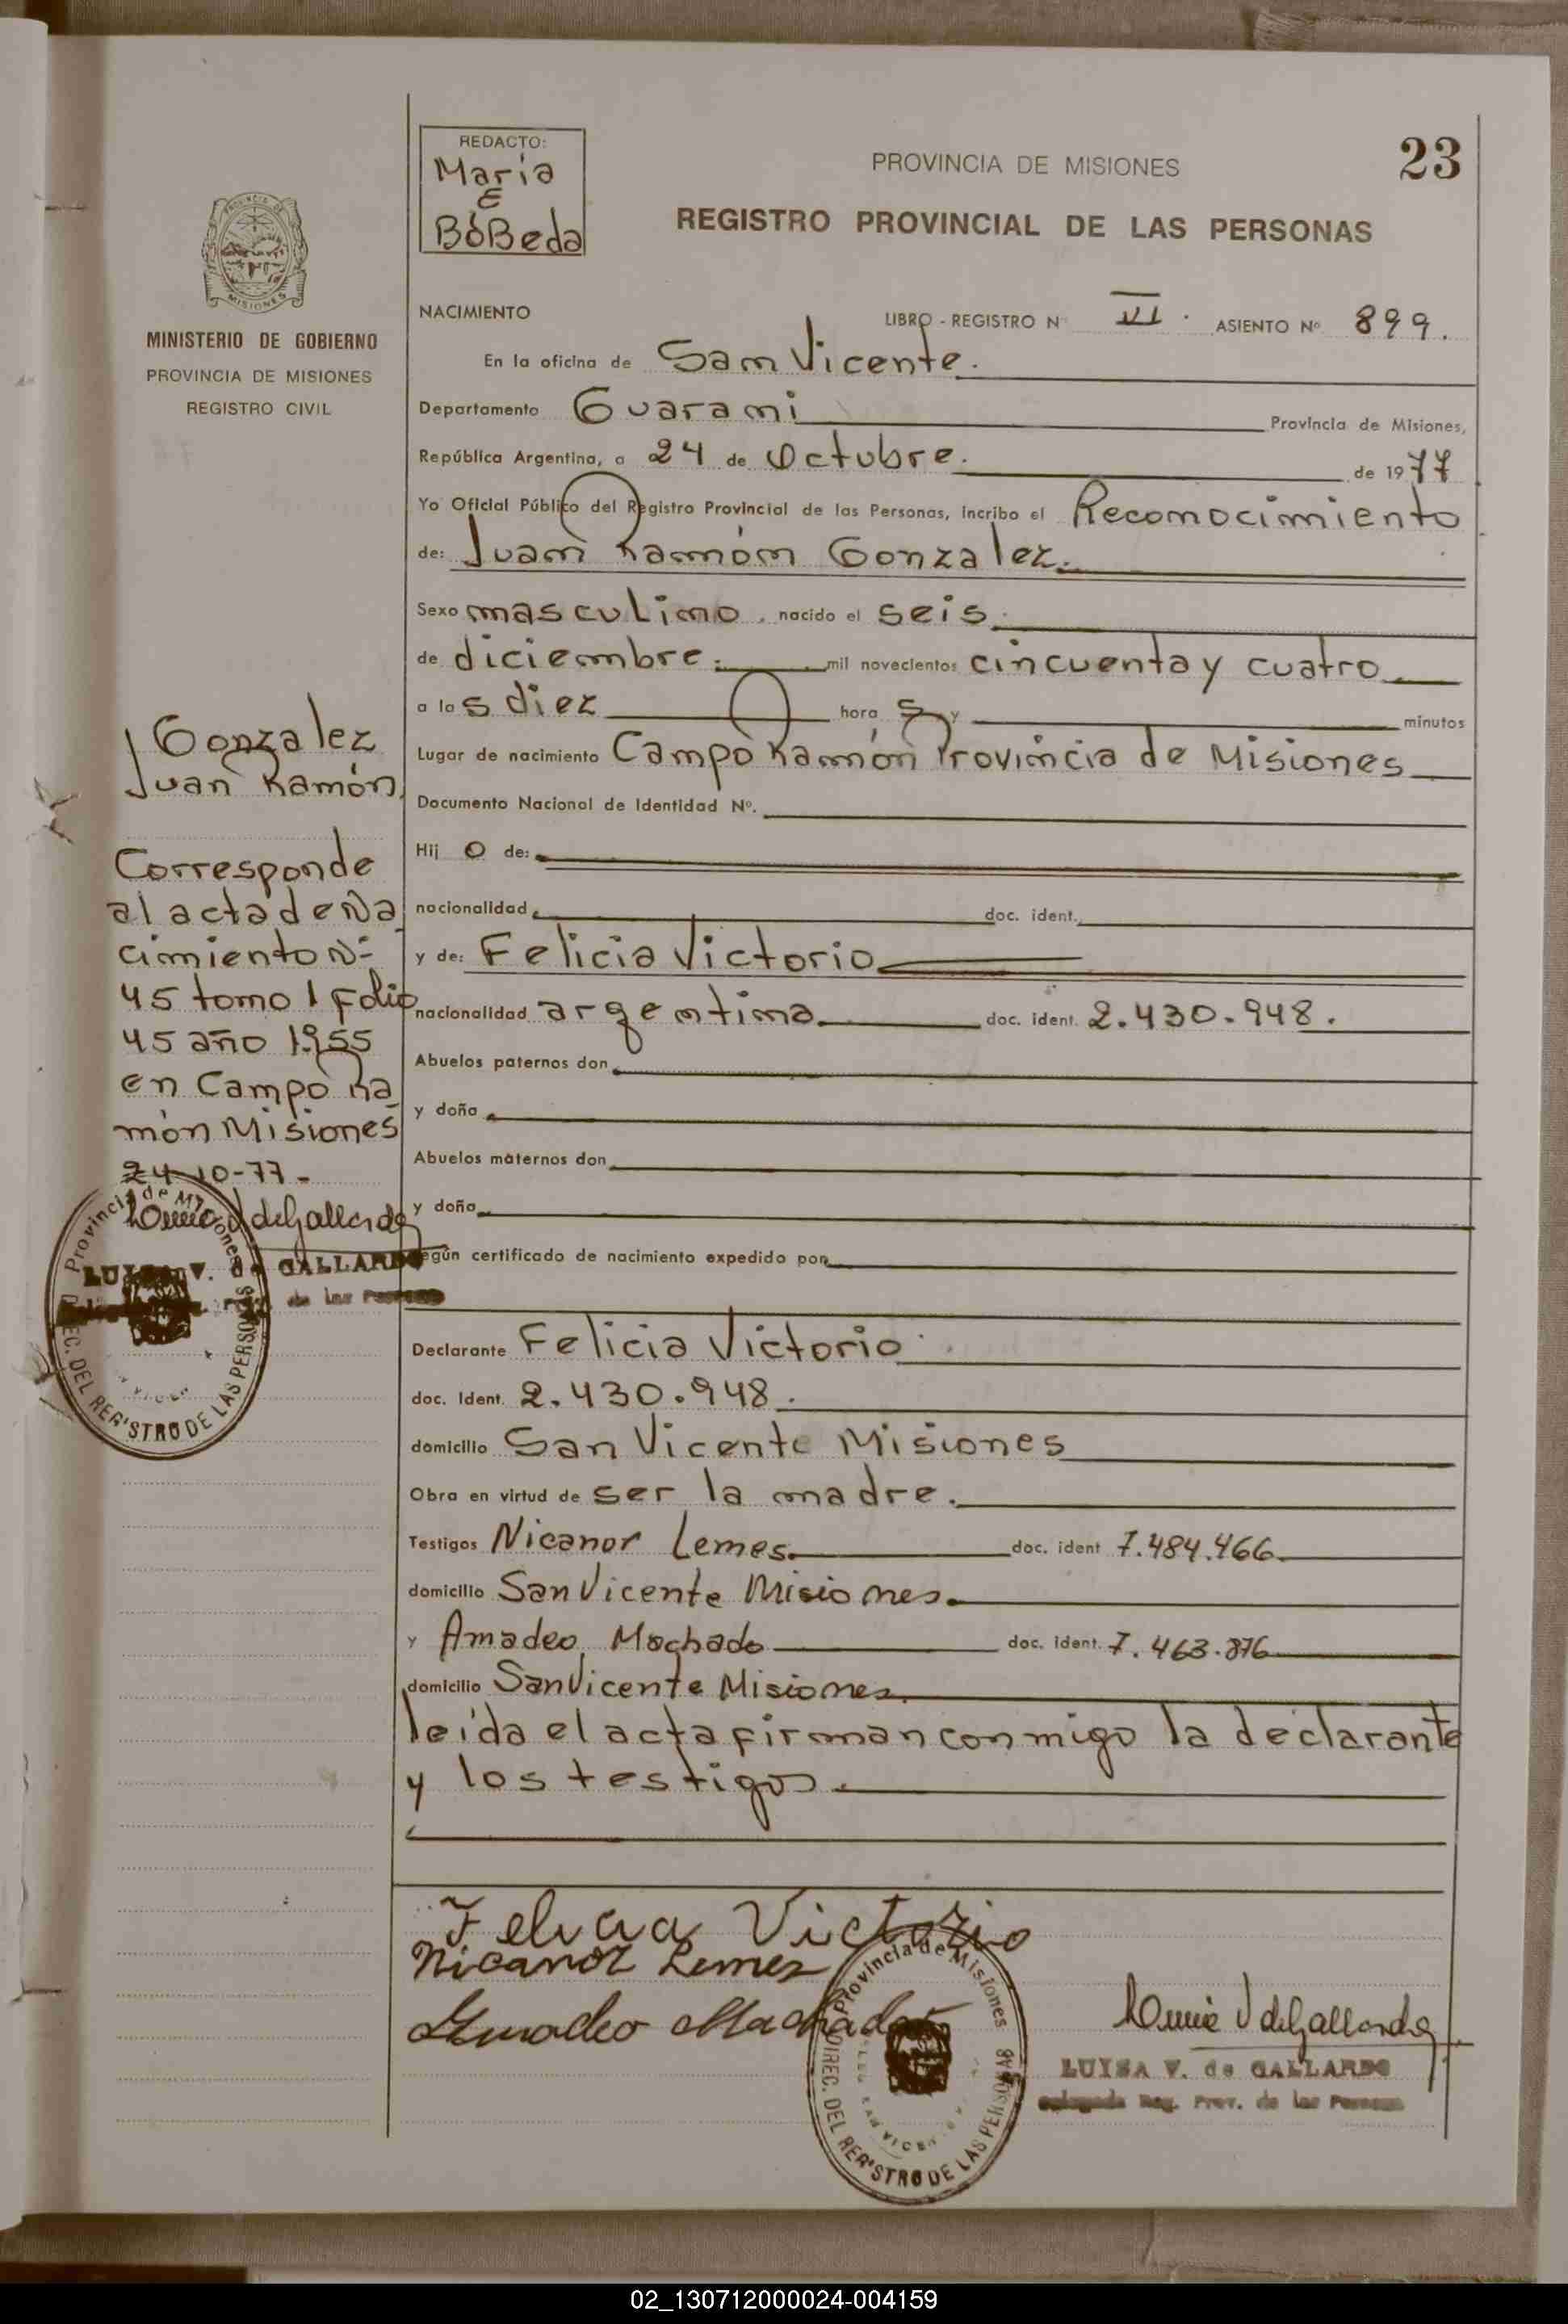 REDACTO:
Maria
E
BóBeda
PROVINCIA DE MISIONES
23
REGISTRO PROVINCIAL DE LAS PERSONAS
MINISTERIO DE GOBIERNO
PROVINCIA DE MISIONES
REGISTRO CIVIL
NACIMIENTO
LIBRO - REGISTRO Nº VI. ASIENTO Nº 899.
En la oficina de San Vicente.
Departamento Guarani Provincia de Misiones,
República Argentina, a 24 de Octubre. de 1977
Yo Oficial Público del Registro Provincial de las Personas, incribo el Reconocimiento
de: Juan Ramón Gonzalez.
Sexo masculino, nacido el seis
de diciembre. mil novecientos cincuenta y cuatro
a las diez horas y minutos
Lugar de nacimiento Campo Ramón Provincia de Misiones
Documento Nacional de Identidad Nº.
Hijo de:
nacionalidad doc. ident.
y de: Felicia Victorio
nacionalidad argentina doc. ident. 2.430.948.
Abuelos paternos don
y doña
Abuelos maternos don
y doña
según certificado de nacimiento expedido por
Declarante Felicia Victorio
doc. Ident. 2.430.948.
domicilio San Vicente Misiones
Obra en virtud de ser la madre.
Testigos Nicanor Lemes doc. ident 7.484.466
domicilio San Vicente Misiones
y Amadeo Machado doc. ident. 7.463.876
domicilio San Vicente Misiones
leída el acta firman conmigo la declarante
y los testigos.
Gonzalez
Juan Ramón
Corresponde
al acta de Na
cimiento Nº
45 tomo 1 Folio
45 año 1955
en Campo Ra
món Misiones
24-10-77
Luisa V de Gallardo
LUISA V. de GALLARDO
de las
Provincia de Misiones
DIREC. DEL REGISTRO DE LAS PERSONAS
Felicia Victorio
Nicanor Lemes
Amadeo Machado
Provincia de Misiones
DIREC. DEL REGISTRO DE LAS PERSONAS
SAN VICEN
Luisa V de Gallardo
LUISA V. de GALLARDO
Delegada Reg. Prov. de las Personas
02_130712000024-004159